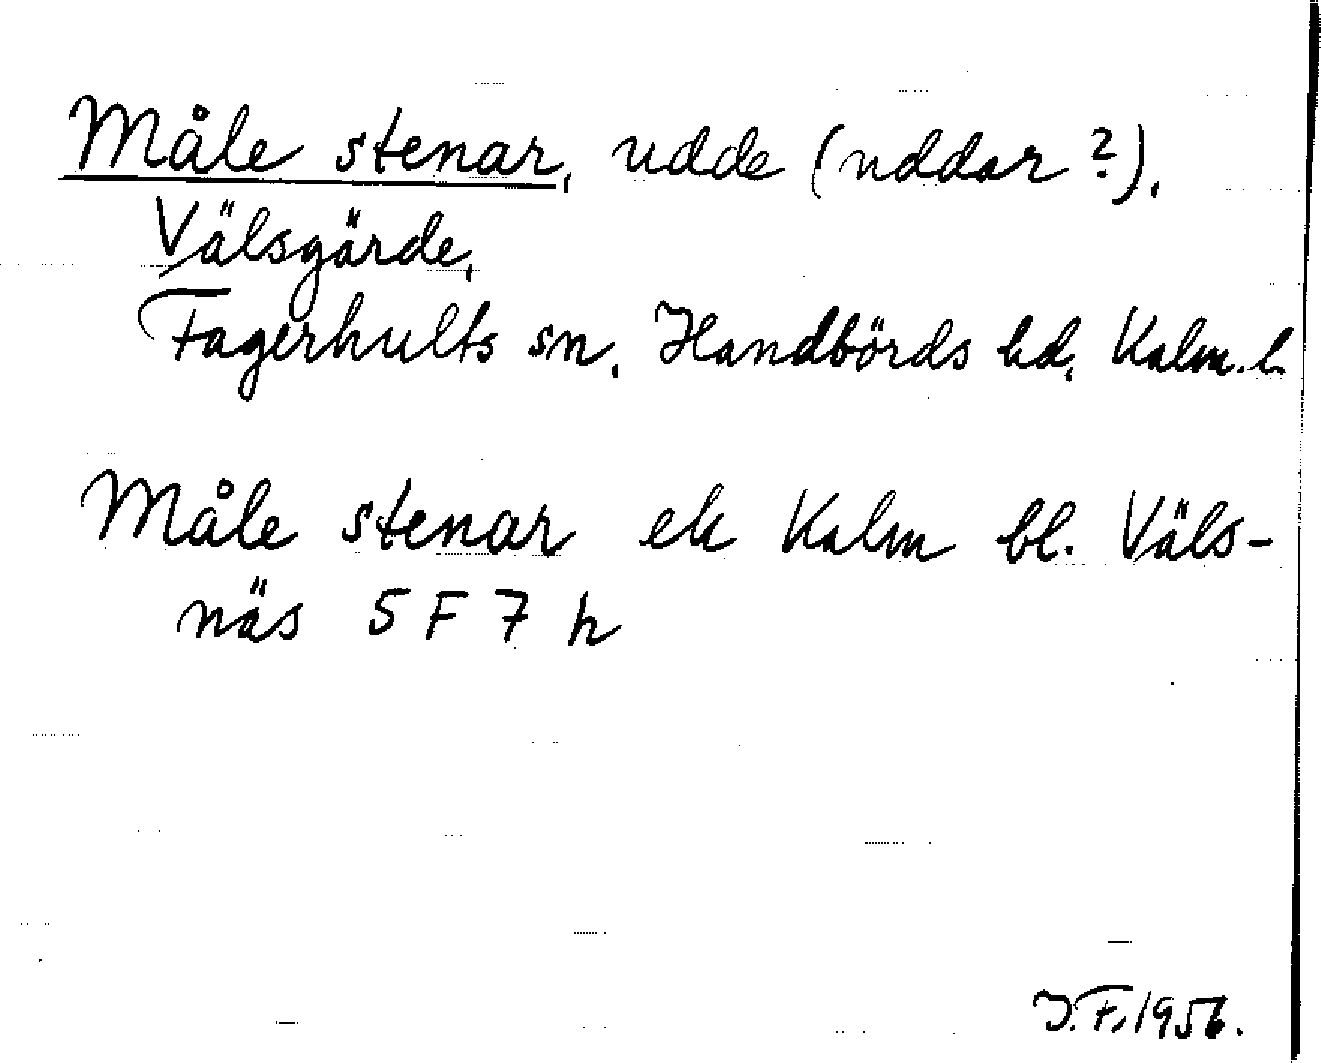 Måle stenar, udde (uddar?),
Välsgärde,
Fagerhults sn, Handbörds hd, Kalm. l.
Måle stenar ek Kalm bl. Väls-
näs 5 F 7 h
J.F, 1956.